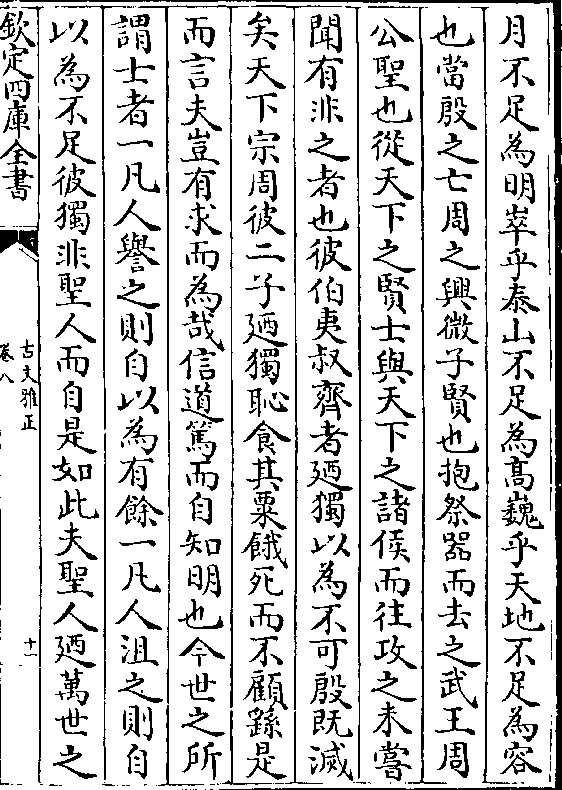 月不足為明崒乎泰山不足為髙巍乎天地不足為容
也當殷之亡周之興微子賢也抱祭器而去之武王周
公聖也從天下之賢士與天下之諸侯而往攻之未嘗
聞有非之者也彼伯夷叔齊者廼獨以為不可殷既滅
矣天下宗周彼二子廼獨恥食其粟餓死而不顧繇是
而言夫豈有求而為哉信道篤而自知明也今世之所
謂士者一凡人譽之則自以為有餘一凡人沮之則自
以為不足彼獨非聖人而自是如此夫聖人廼萬世之
欽定四庫全書
古文雅正
卷八
十一